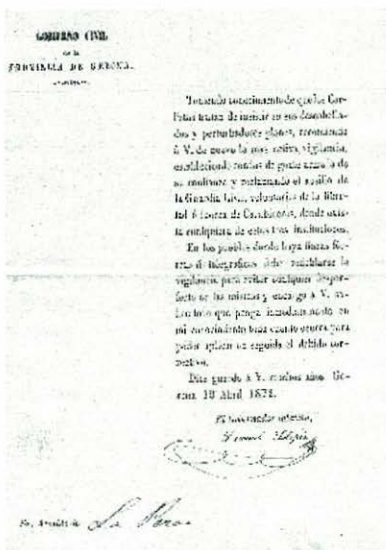 GOBIERNO CIVIL
de la
PROVINCIA DE GERONA.
Teniendo conocimiento de que los Car-
listas tratan de insistir en sus descabella-
dos y perturbadores planes, recomiendo
á V. de nuevo la mas activa vigilancia,
estableciendo rondas de gente armada de
su confianza y reclamando el ausilio de
la Guardia Civil, voluntarios de la liber-
tad ó fuerza de Carabineros, donde exis-
ta cualquiera de estos tres institutos.
En los pueblos donde haya líneas fér-
reas ó telegráficas debe redoblarse la
vigilancia para evitar cualquier desper-
fecto en las mismas y encargo á V.
que ponga inmediatamente en
mi conocimiento todo cuanto ocurra para
poder aplicar en seguida el debido cor-
rectivo.
Dios guarde á V. muchos años. Ge-
rona 10 Abril 1872.
El Gobernador interino,
Sr. Alcalde de La Pera